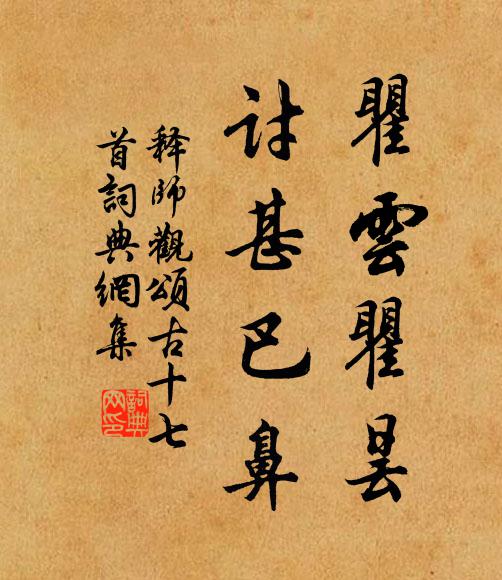 瞿雲瞿昙
討甚巴鼻
释師觀頌古十七
首詞典網集
詞典网印